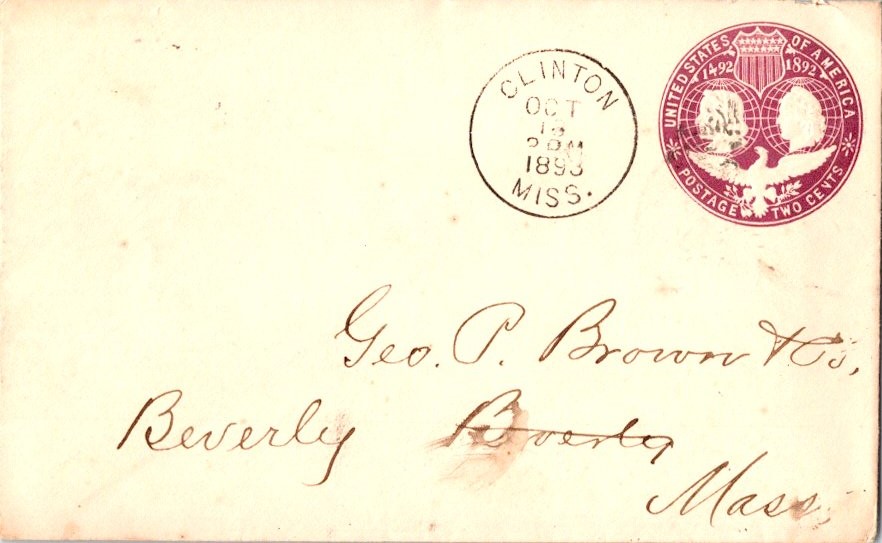 CLINTON
OCT
2 PM
1893
MISS.
UNITED STATES OF AMERICA
1492 1892
POSTAGE TWO CENTS
Geo. P. Brown & Co,
Beverly Boverly
Mass.